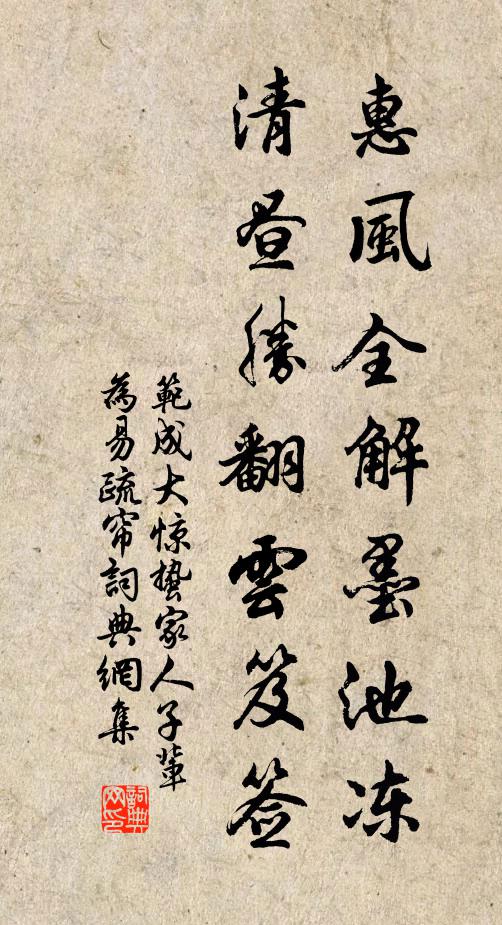 惠風全解墨池冻
清昼勝翻雲笈签
範成大惊蛰家人子輩
為易疏帘詞典網集
詞典网印